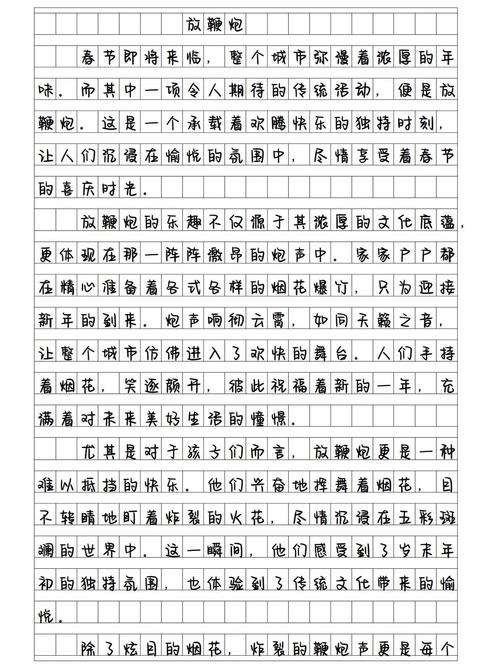 放鞭炮
春节即将来临，整个城市弥漫着浓厚的年
味。而其中一项令人期待的传统活动，便是放
鞭炮。这是一个承载着欢腾快乐的独特时刻，
让人们沉浸在愉悦的氛围中，尽情享受着春节
的喜庆时光。
放鞭炮的乐趣不仅源于其浓厚的文化底蕴，
更体现在那一阵阵激昂的炮声中。家家户户都
在精心准备着各式各样的烟花爆竹，只为迎接
新年的到来。炮声响彻云霄，如同天籁之音，
让整个城市仿佛进入了欢快的舞台。人们手持
着烟花，笑逐颜开，彼此祝福着新的一年，充
满着对未来美好生活的憧憬。
尤其是对于孩子们而言，放鞭炮更是一种
难以抵挡的快乐。他们兴奋地挥舞着烟花，目
不转睛地盯着炸裂的火花，尽情沉浸在五彩斑
斓的世界中。这一瞬间，他们感受到了岁末年
初的独特氛围，也体验到了传统文化带来的愉
悦。
除了炫目的烟花，炸裂的鞭炮声更是每个